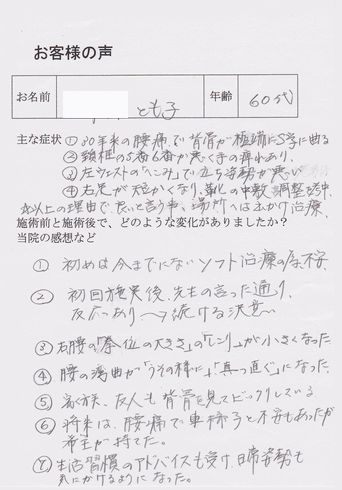 お客様の声
お名前 とも子 年齢 60代
主な症状 ①30年来の腰痛で背骨が極端にS字に曲る
②頚椎の5番6番が悪く手の痺れあり、
③左ウェストの「へこみ」で立ち姿勢が悪い
④右足が短かくなり、靴の中敷調整
以上の理由で、良いと言う事、場所へは出かけ治療、
施術前と施術後で、どのような変化がありましたか?
当院の感想など
① 初めは今までにないソフト治療の
② 初回施実後、先生の言った通り、
反応あり→続ける決意
③右腰の「 大きさ」の「しこり」が小さくなった
④ 腰の湾曲が「うその様に」「真っ直ぐ」になった
⑤ 家族、友人も背骨を見てビックリしている
⑥ 将来は、腰痛で車椅子と不安もあったが
希望が持てた。
⑦ 生活習慣のアドバイスも受け、日常姿勢も
気にかけるようになった。